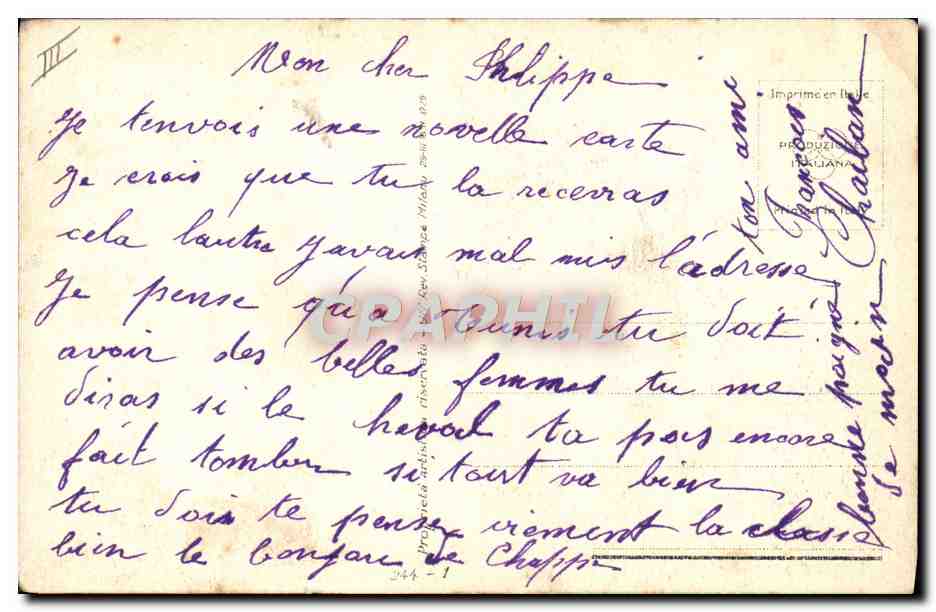 III
Mon cher Philippe
Je tenvois une novelle carte
Je crois que tu la recevras
cela lautre Javais mal mis l'adresse
Je pense qu'a Tunis tu doit
avoir des belles femmes tu me
diras si le heval ta pas encore
fait tomber si tout va bien
tu dois te pense viement la classe
bien le bonjour de Chappe
bonne poigné
de main
ton ami
Francois
Imprimé en Italie
PRODUZIONE
ITALIANA
Printed in Italy
Proprietà artistica riservata - Rev. Stampa Milano
CPAPHIL
244-1